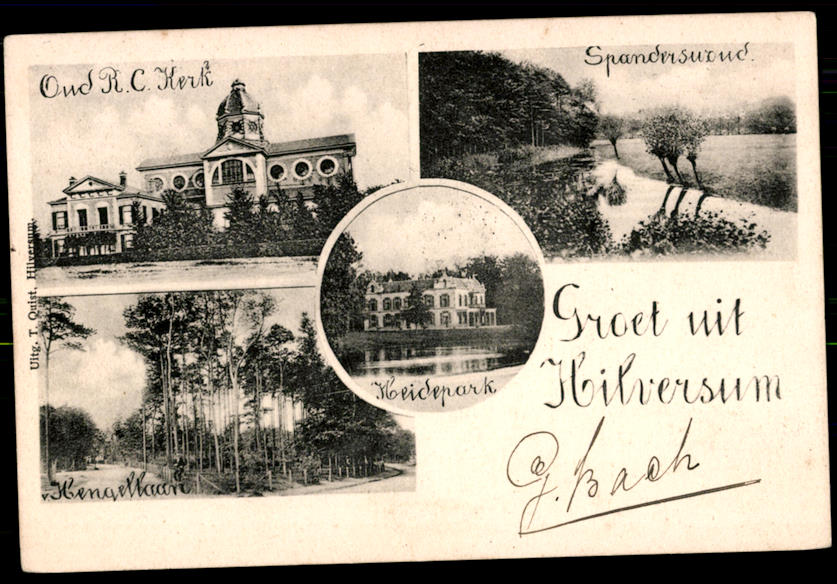 Oud R. C. Kerk
Spanderswoud.
Heidepark
v. Hengellaan
Groet uit
Hilversum
G. Bach
Uitg. T. Quist, Hilversum